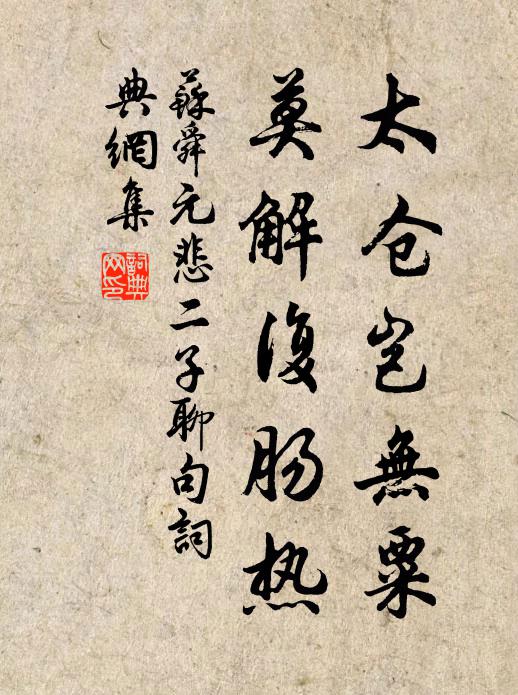 太仓岂無粟
莫解復肠热
蘇舜元悲二子聊句詞
典網集
詞典网印